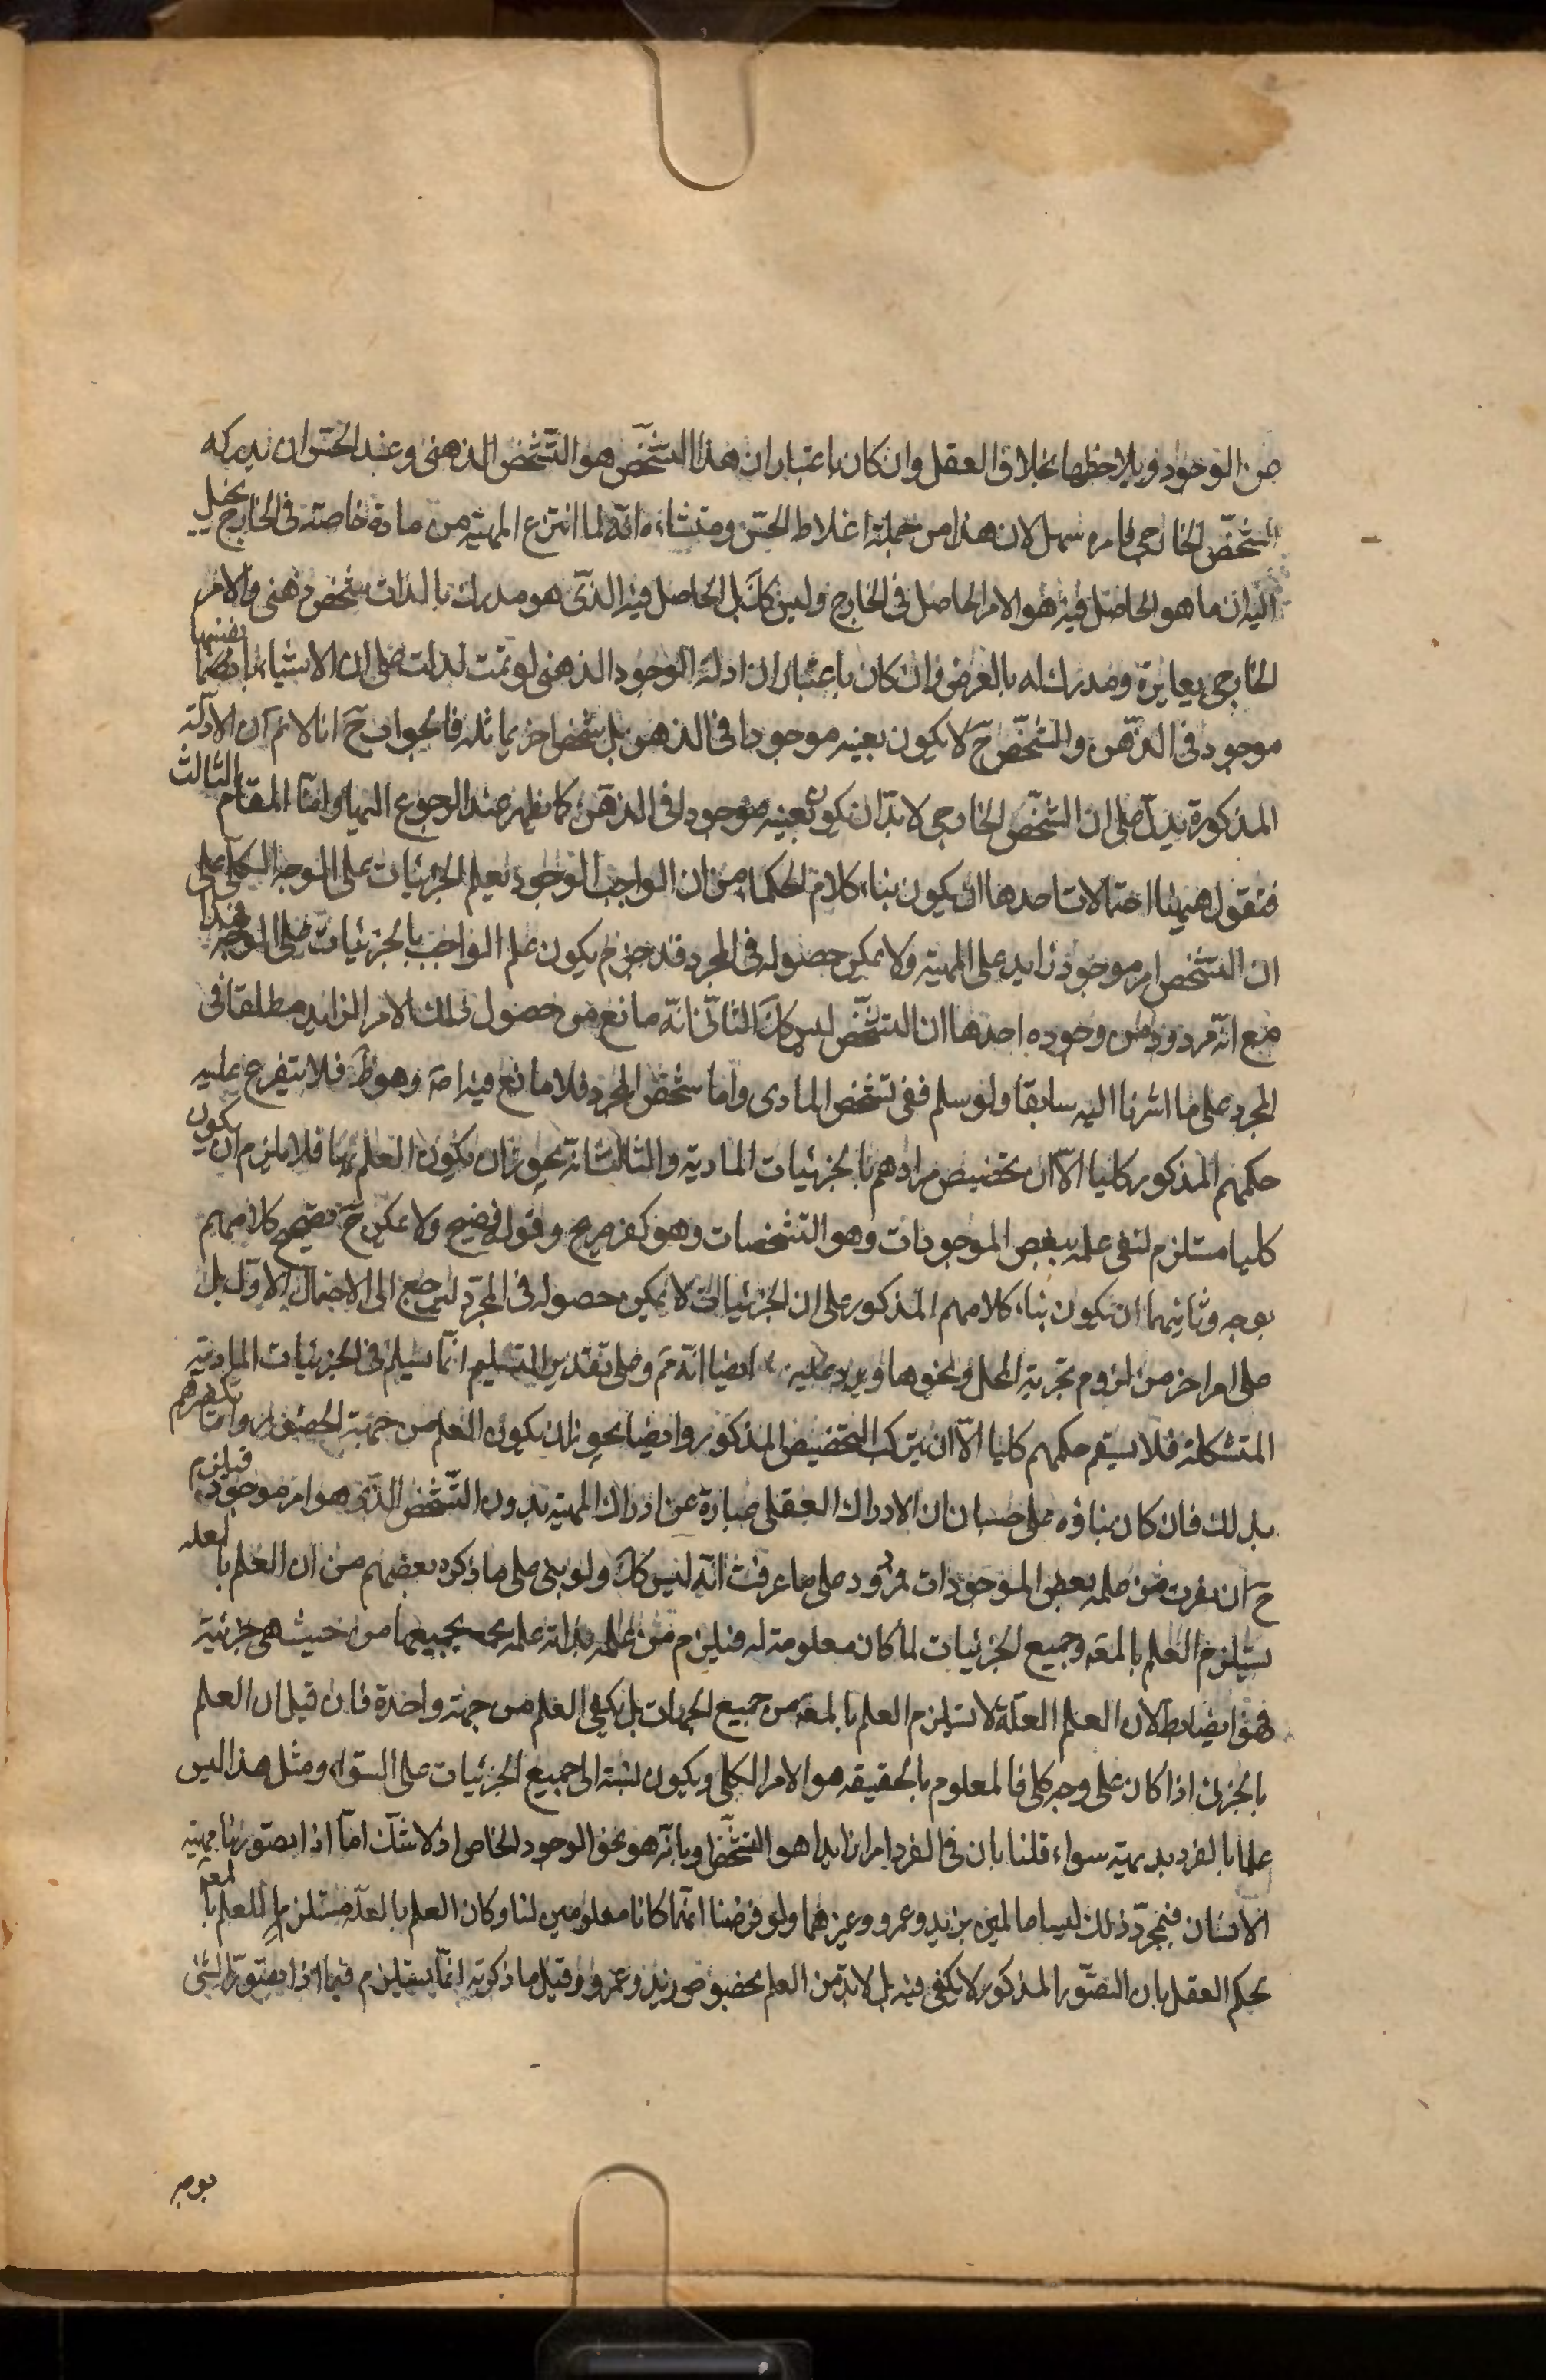 من الوجود ويلاحظها بخلاف العقل وان كان باعتبار ان هذا الشخص هو التشخص الذهنى وعند الحس ان يدركه
الشخص الخارجى فامره سهل لان هذا من جملة اغلاط الحس ومنشاءه انه لما انتزع المهية من مادة خاصة فى الخارج يخيل
اليه ان ما هو الحاصل فيه هو الامر الحاصل فى الخارج وليس كك بل الحاصل فيه الذى هو مدرك بالذات شخص ذهنى والامر
الخارجى يغايره ومدرك له بالعرض وان كان باعتبار ان ادلة الوجود الذهنى لو تمت لدلت على ان الاشياء بانفسها
موجود فى الذهن والشخص ح لا يكون بعينه موجودا فى الذهن بل شخص اخر يماثله فالجواب ح انا لا نم ان الادلة
المذكورة يدل على ان الشخص الخارجى لا بد ان يكون بعينه موجودا فى الذهن كما يظهر عند الرجوع اليها واما المقام الثالث
فنقول هيهنا احتمالات احدها ان يكون بناء كلام الحكماء من ان الواجب الوجود يعلم الجزئيات على الوجه الكلى على
ان التشخص امر موجود زايد على المهية ولا يمكن حصوله فى المجرد فتدخرم يكون علم الواجب بالجزئيات على الوجه فهذا
مع انه مردود من وجوه احدها ان التشخص ليس كك الثانى انه مانع من حصول ذلك الامر الزايد مطلقا فى
المجرد على ما اشرنا اليه سابقا ولو سلم ففى تشخص المادى واما شخص المجرد فلا مانع فيه اصة وهو ظ فلا يتفرع عليه
حكمهم المذكور كليا الا ان يخصيص مرادهم بالجزئيات المادية والثالث انه يجوز ان يكون العلم بها فلا يلزم ان يكون
كليا مستلزم لنفى علمه ببعض الموجودات وهو التشخصات وهو كفر صريح وقول فضيح ولا يمكن ح تصحيح كلامهم
بوجه وثانيهما ان يكون بناء كلامهم المذكور على ان الجزئيات لا يمكن حصوله فى المجرد لترجع الى الاحتمال الاول بل
على امر اخر من لزوم تجزية المحل ونحوها ويرد عليه ايضا انه ثم وعلى تقدير التسليم انما يسلم فى الجزئيات المادية
المتشكلة فلا يستقيم حكمهم كليا الا ان يرتكب التخصيص المذكور وايضا يجوز ان يكون العلم من جهة الحضور واما تكفيرهم
بذلك فان كان بناؤه على حسبان ان الادراك العقلى عبارة عن ادراك المهية بدون التشخص الذى هو امر موجود فيلزم
ح ان يعزب من علمه بعض الموجودات فمردود على ما عرفت انه ليس كك ولو بنى على ما ذكره بعضهم من ان العلم بالعله
يستلزم العلم بالمعه وجميع الجزئيات لما كان معلومة له فيلزم من علمه بذاته علمه بجميعها من حيث هى جزئية
فهو ايضا بط لان العلم العلة لا يستلزم العلم بالمعه من جميع الجهات بل يكفى العلم من جهة واحدة فان قيل ان العلم
بالجزئى اذا كان على وجه كلى فالمعلوم بالحقيقه هو الامر الكلى ويكون نسبته الى جميع الجزئيات على السواء ومثل هذا ليس
علما بالفرد بديهية سواء قلنا بان فى الفرد امرا زايدا هو التشخص او بانه هو نحو الوجود الخاص اذ لا شك اما اذا تصورنا مهية
الانسان فبمجرد ذلك ليسا عالمين بزيد وعمرو وغيرهما ولو فرضنا انهما كانا معلومين لنا وكان العلم بالعلة مستلزما للعلم بالمعه
يحكم العقل بان التصور المذكور لا يكفى فيه بل لا بد من العلم بخصوص زيد وعمرو وقيل ما ذكرته انما يستلزم فيما اذا تصور الشئ
بوجه